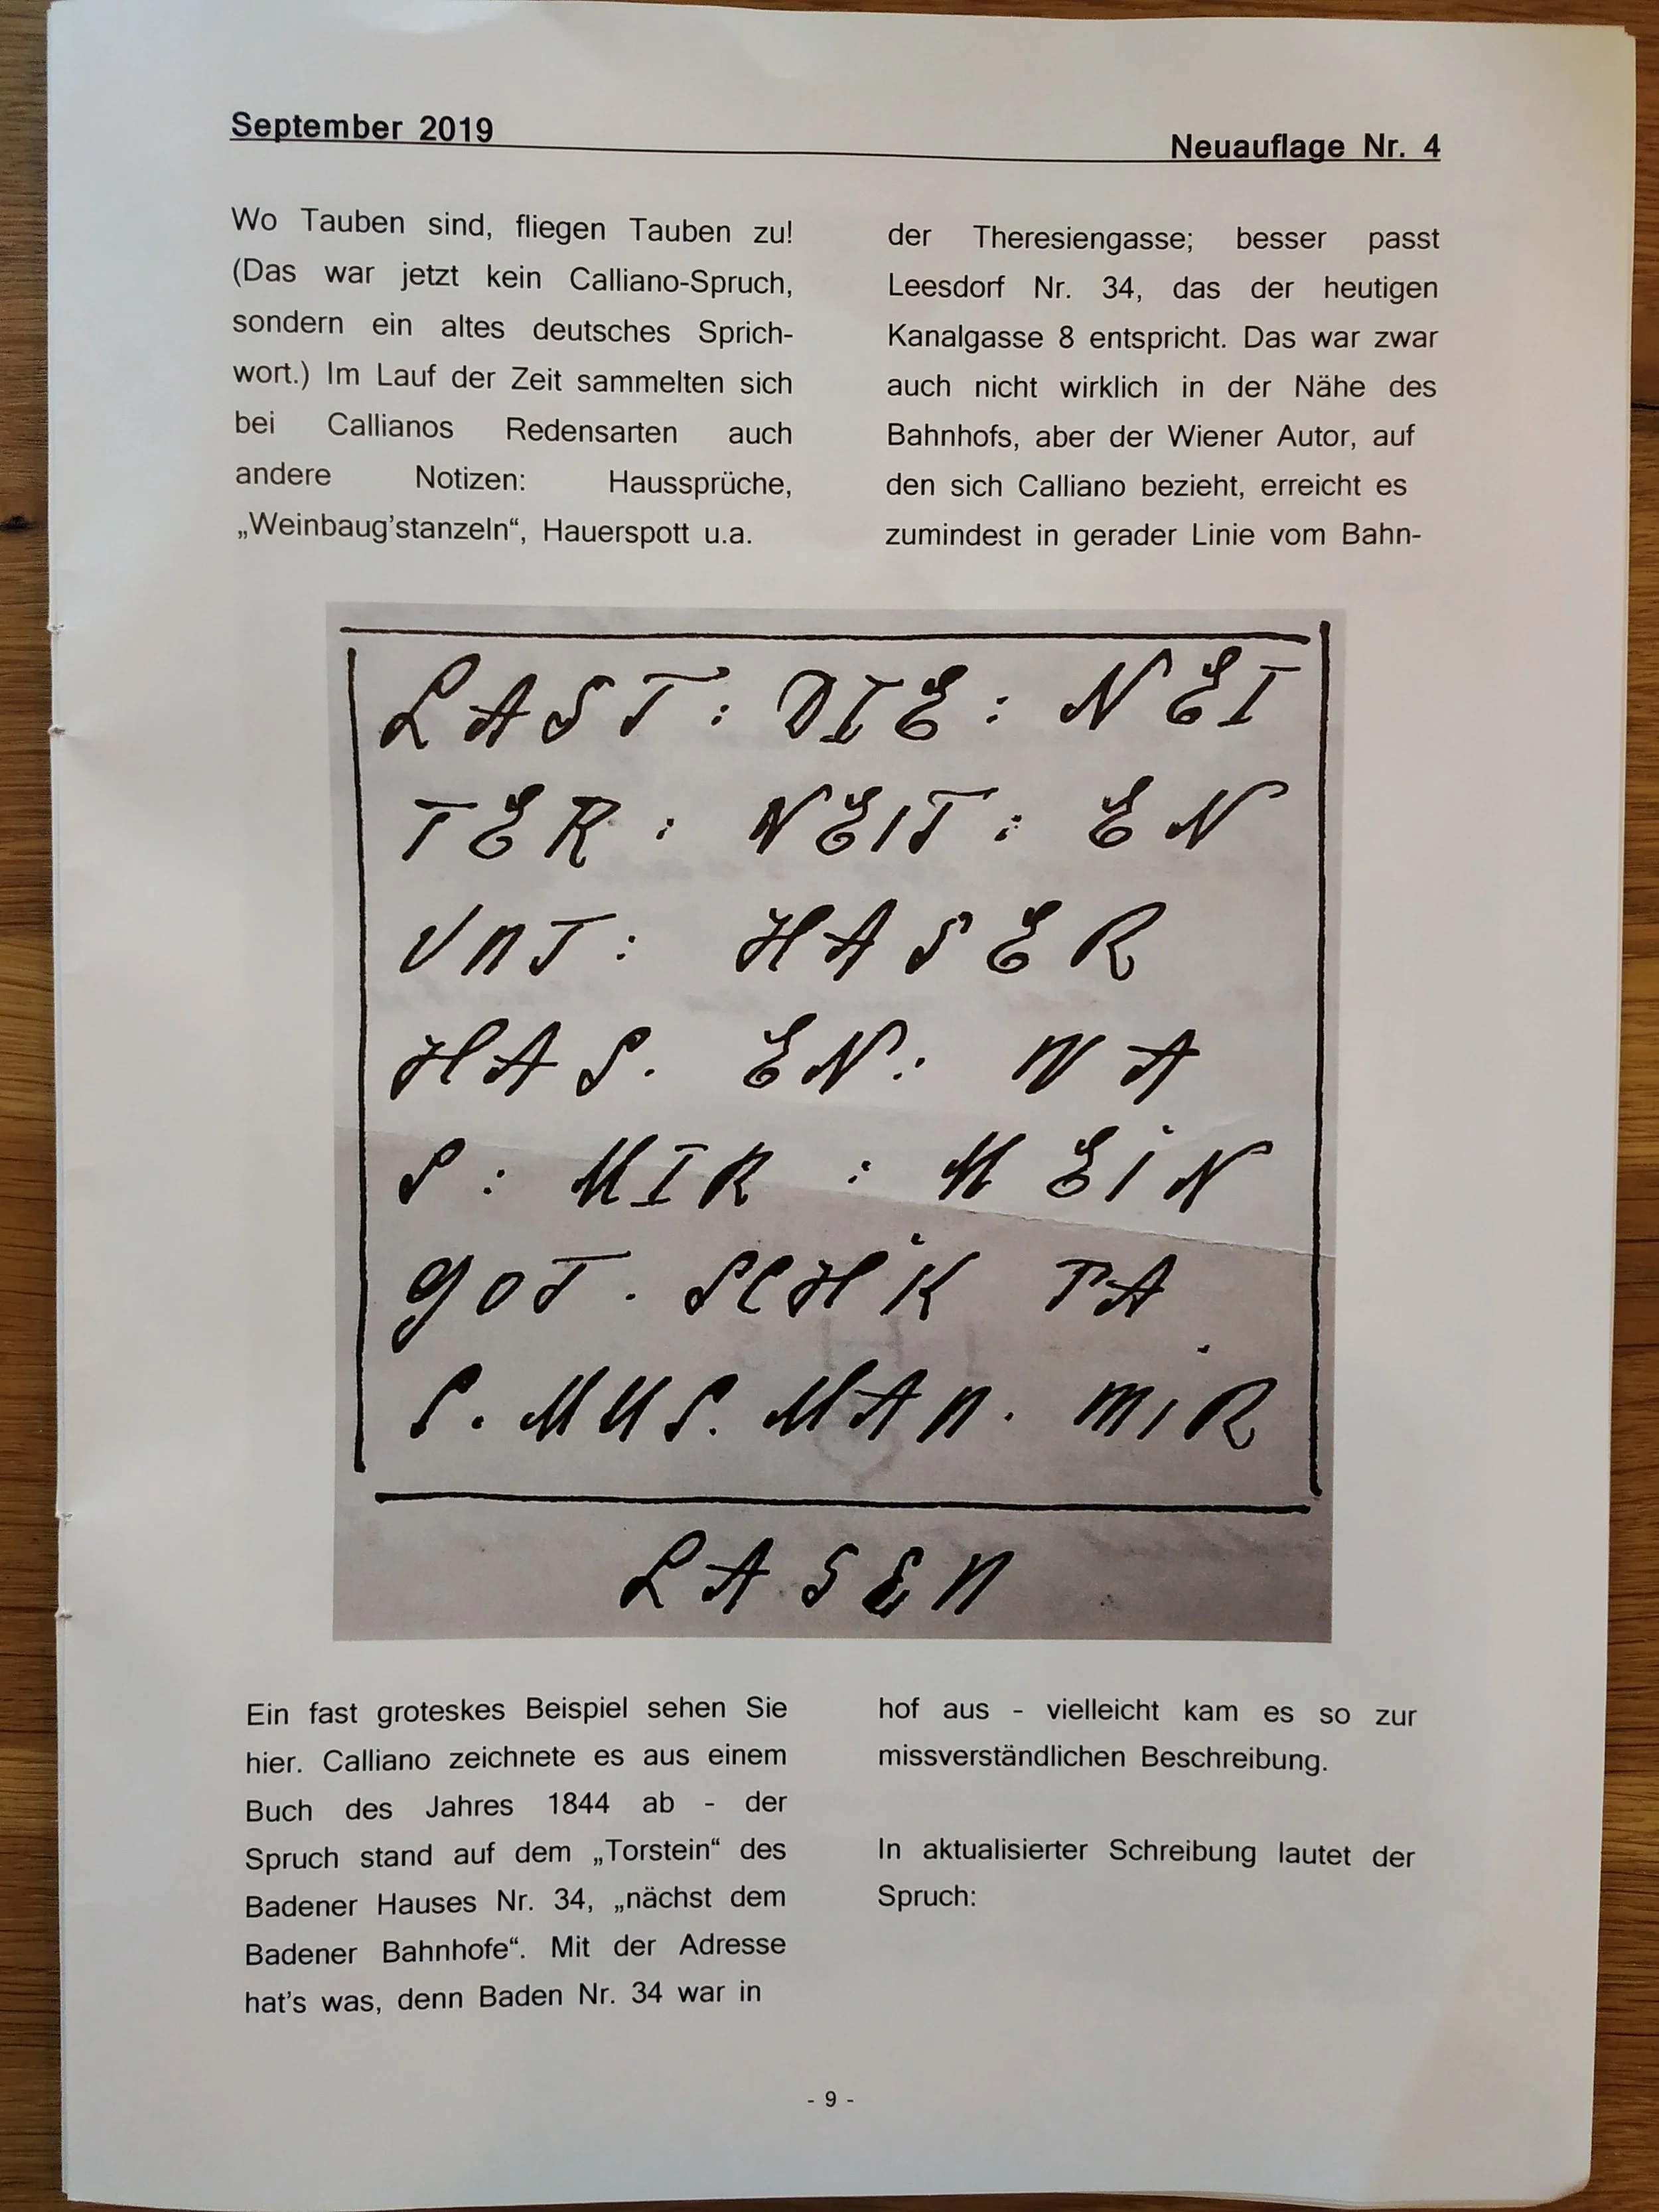 September 2019
Neuauflage Nr. 4
Wo Tauben sind, fliegen Tauben zu!
(Das war jetzt kein Calliano-Spruch,
sondern ein altes deutsches Sprich-
wort.) Im Lauf der Zeit sammelten sich
bei Callianos Redensarten auch
andere Notizen: Haussprüche,
„Weinbaug’stanzeln“, Hauerspott u.a.
der Theresiengasse; besser passt
Leesdorf Nr. 34, das der heutigen
Kanalgasse 8 entspricht. Das war zwar
auch nicht wirklich in der Nähe des
Bahnhofs, aber der Wiener Autor, auf
den sich Calliano bezieht, erreicht es
zumindest in gerader Linie vom Bahn-
LAST : DIE : NEI
TER : NEIT : EN
UNT : HASER
HAS. EN : WA
S : MIR : MEIN
GOT . SCHIK TA
S. MUS. MAN. MIR
LASEN
Ein fast groteskes Beispiel sehen Sie
hier. Calliano zeichnete es aus einem
Buch des Jahres 1844 ab - der
Spruch stand auf dem „Torstein“ des
Badener Hauses Nr. 34, „nächst dem
Badener Bahnhofe“. Mit der Adresse
hat’s was, denn Baden Nr. 34 war in
hof aus - vielleicht kam es so zur
missverständlichen Beschreibung.
In aktualisierter Schreibung lautet der
Spruch:
- 9 -